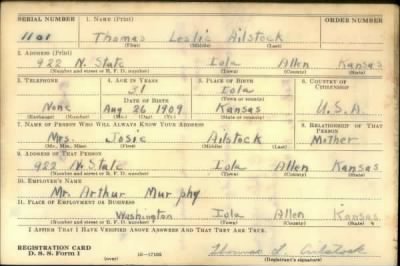 SERIAL NUMBER 1. NAME (Print) ORDER NUMBER
1101 Thomas Leslie Ailstock
(First) (Middle) (Last)
2. ADDRESS (Print)
922 N. State Iola Allen Kansas
(Number and street or R. F. D. number) (Town) (County) (State)
3. TELEPHONE 4. AGE IN YEARS 5. PLACE OF BIRTH 6. COUNTRY OF CITIZENSHIP
31 Iola
DATE OF BIRTH (Town or county)
None Aug 26 1909 Kansas U.S.A.
(Exchange) (Number) (Mo.) (Day) (Yr.) (State or country)
7. NAME OF PERSON WHO WILL ALWAYS KNOW YOUR ADDRESS 8. RELATIONSHIP OF THAT PERSON
Mrs. Josie Ailstock Mother
(Mr., Mrs., Miss) (First) (Middle) (Last)
9. ADDRESS OF THAT PERSON
922 N. State Iola Allen Kansas
(Number and street or R. F. D. number) (Town) (County) (State)
10. EMPLOYER'S NAME
Mr. Arthur Murphy
11. PLACE OF EMPLOYMENT OR BUSINESS
Washington Iola Allen Kansas
(Number and street or R. F. D. number) (Town) (County) (State)
I AFFIRM THAT I HAVE VERIFIED ABOVE ANSWERS AND THAT THEY ARE TRUE.
REGISTRATION CARD
D. S. S. Form 1 (over) Thomas L. Ailstock
(Registrant's signature)